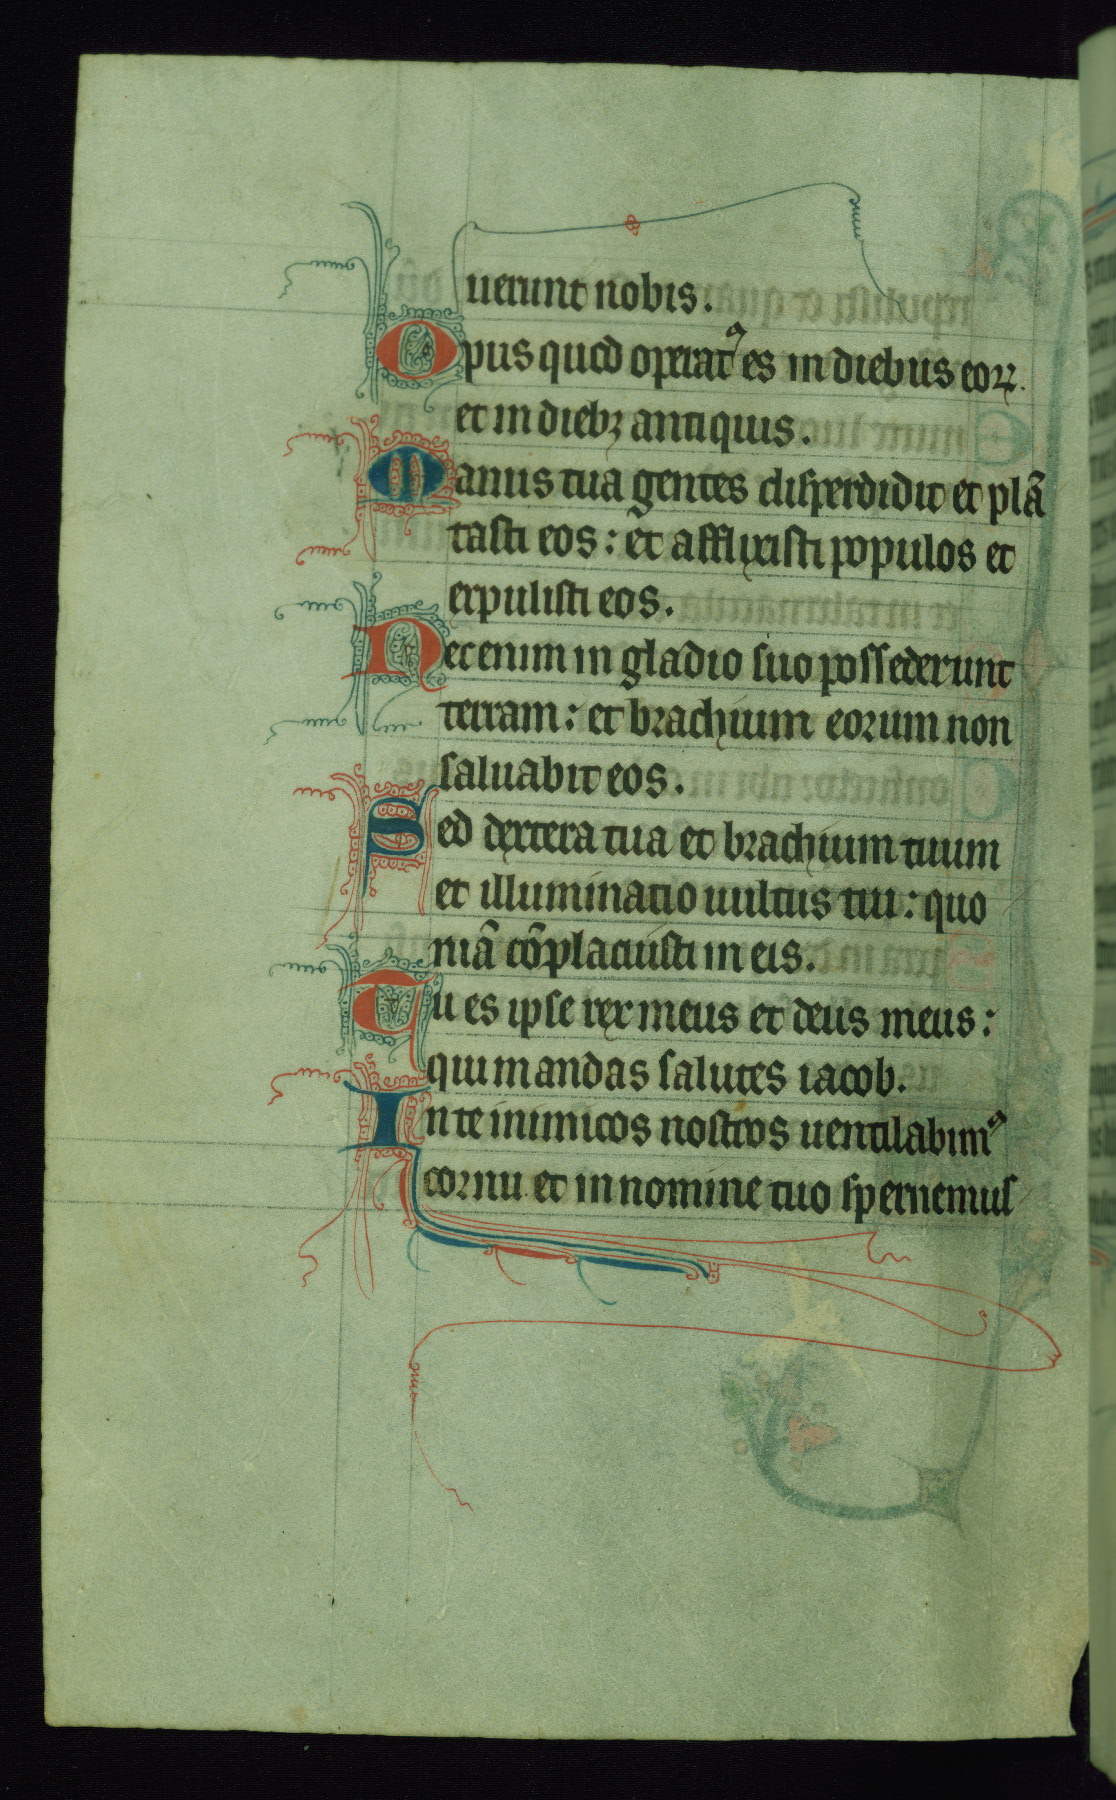 uerunt nobis.
Opus quod operatꝰ es in diebus eoꝝ.
et in diebꝫ antiquis.
Manus tua gentes disperdidit et plā
tasti eos: et afflixisti populos et
expulisti eos.
Nec enim in gladio suo possederunt
terram: et brachium eorum non
saluabit eos.
Sed dextera tua et brachium tuum
et illuminatio uultus tui: quo
niā cōplacuisti in eis.
Tu es ipse rex meus et deus meus:
qui mandas salutes iacob.
In te inimicos nostros uentilabimꝰ
cornu et in nomine tuo spernemus